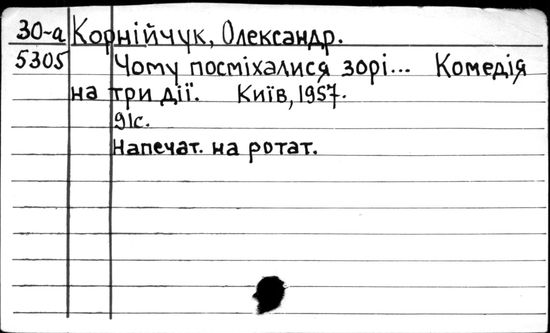 30-а Корнійчук, Олександр.
5305 Чому посміхалися зорі... Комедія
на три дії. Київ, 1957.
91с.
Напечат. на ротат.